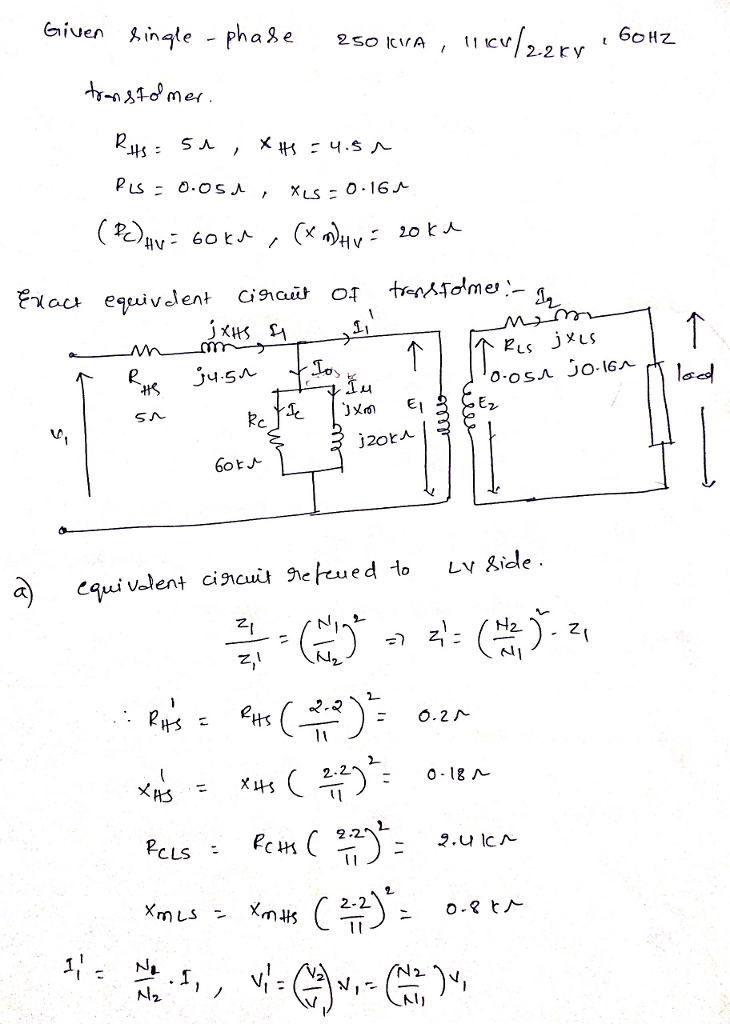 Given single-phase 250 KVA, 11 KV/2.2KV, 60HZ
transformer.
R_HS = 5Ω, X_HS = 4.5Ω
R_LS = 0.05Ω, X_LS = 0.16Ω
(R_C)_HV = 60 kΩ, (X_m)_HV = 20 kΩ
Exact equivalent circuit of transformer:-
jX_HS I_1 I_1' I_2
R_HS j4.5Ω I_0 R_LS jX_LS
5Ω I_C I_M 0.05Ω j0.16Ω load
V_1 R_C jX_m E_1 E_2
60kΩ j20kΩ
a) equivalent circuit refered to LV side.
Z_1/Z_1' = (N_1/N_2)² ⇒ Z_1' = (N_2/N_1)² · Z_1
∴ R_HS' = R_HS (2.2/11)² = 0.2Ω
X_HS' = X_HS (2.2/11)² = 0.18Ω
R_CLS = R_CHS (2.2/11)² = 2.4 kΩ
X_mLS = X_mHS (2.2/11)² = 0.8 kΩ
I_1' = N_1/N_2 · I_1, V_1' = (V_2/V_1) V_1 = (N_2/N_1) V_1